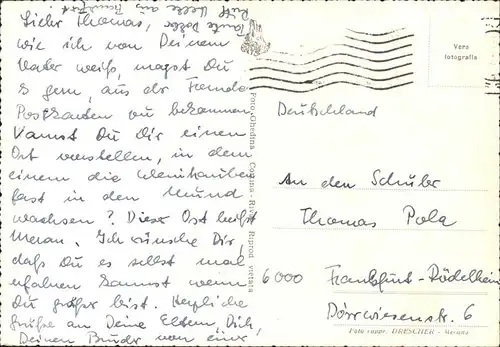 Lieber Thomas,
wie ich von Deinem
Vater weiß, magst Du
es gern, aus der Fremde
Postkarten zu bekommen.
Kannst Du Dir einen
Ort vorstellen, in dem
einem die Weintrauben
fast in den Mund
wachsen? Dieser Ort heißt
Meran. Ich wünsche Dir
daß Du es selbst mal
erfahren kannst wenn
Du größer bist. Herzliche
Grüße an Deine Eltern, Dich,
Deinen Bruder von einer
Tante
aus Frankfurt!
Foto Ghedina - Cortina - Riprod. vietata
Vera
fotografia
Deutschland
An den Schüler
Thomas Pola
6000 Frankfurt-Rödelheim
Dörrwiesenstr. 6
Foto rappr. DRESCHER - Merano